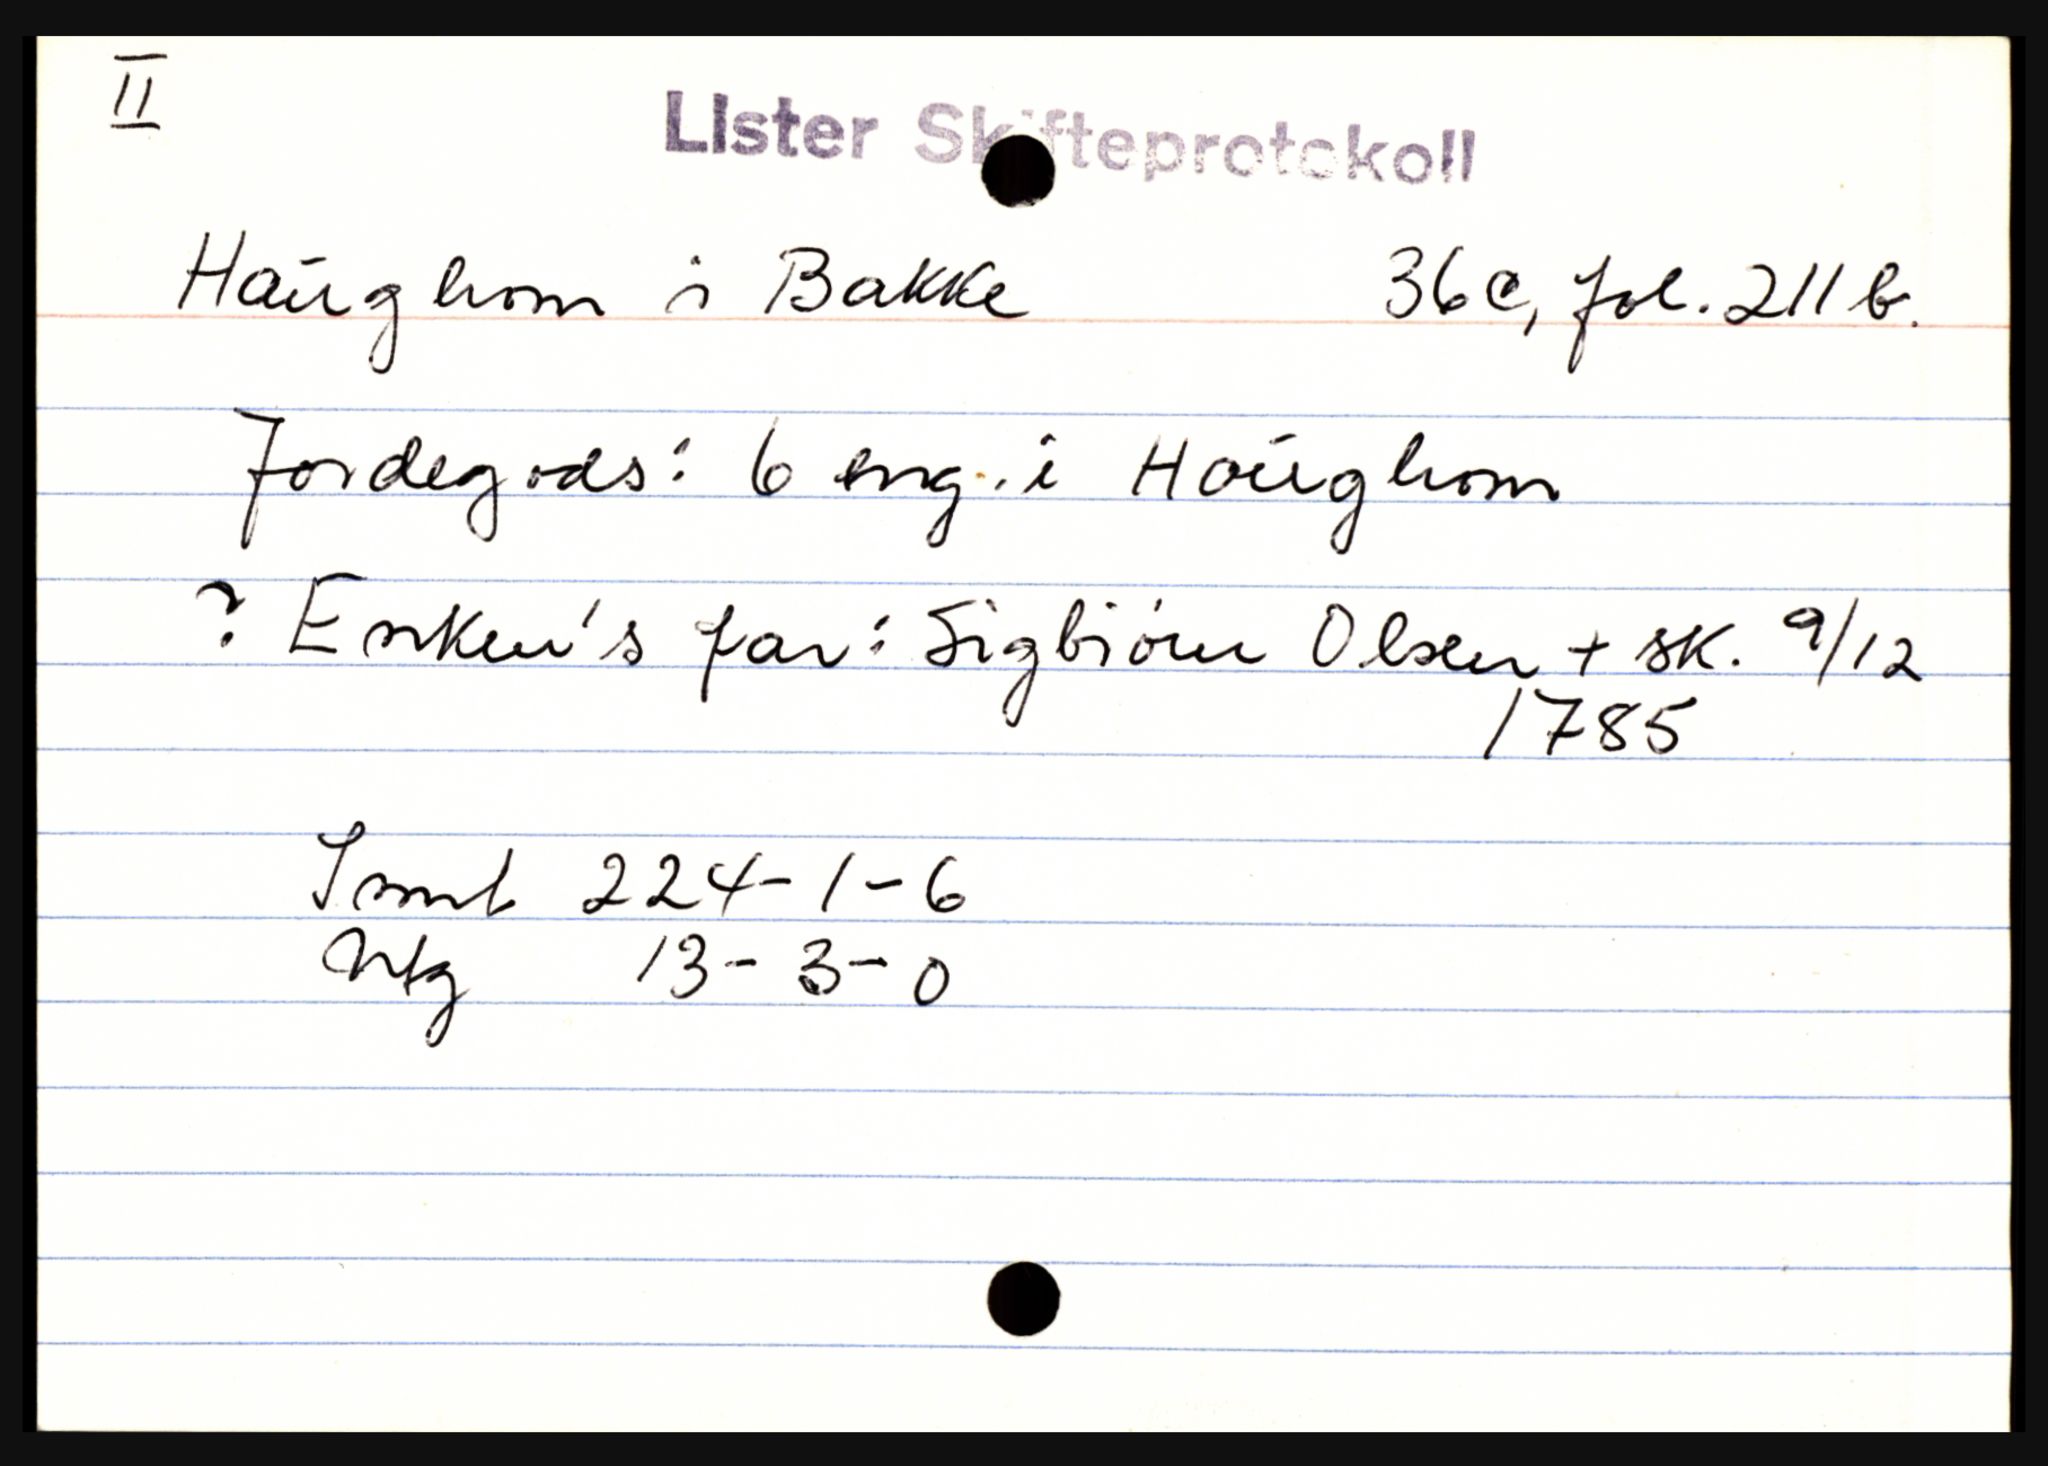 II
LIster Skifteprotokoll
Haughom i Bakke 36c, fol. 211 b.
Jordegods: 6 eng. i Haughom
? Enken's far: Sigbiörn Olsen + sk. 9/12
1785
Smb 224-1-6
Utg 13-3-0